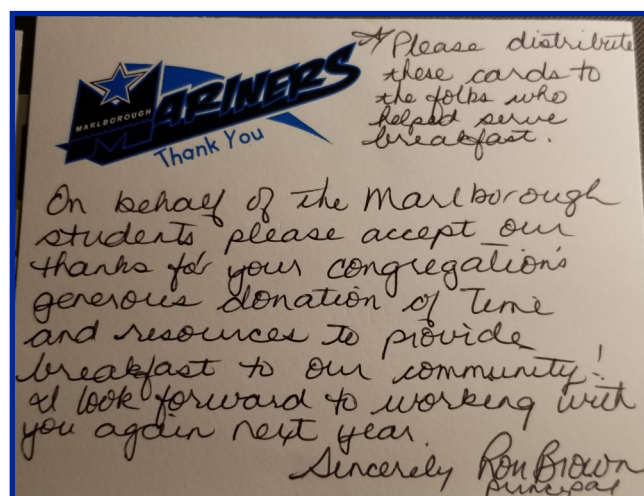 MARLBOROUGH
MARINERS
Thank You
☆ Please distribute
these cards to
the folks who
helped serve
breakfast.
On behalf of the Marlborough
students please accept our
thanks for your congregation's
generous donation of time
and resources to provide
breakfast to our community!
I look forward to working with
you again next year.
Sincerely Ron Brown
principal